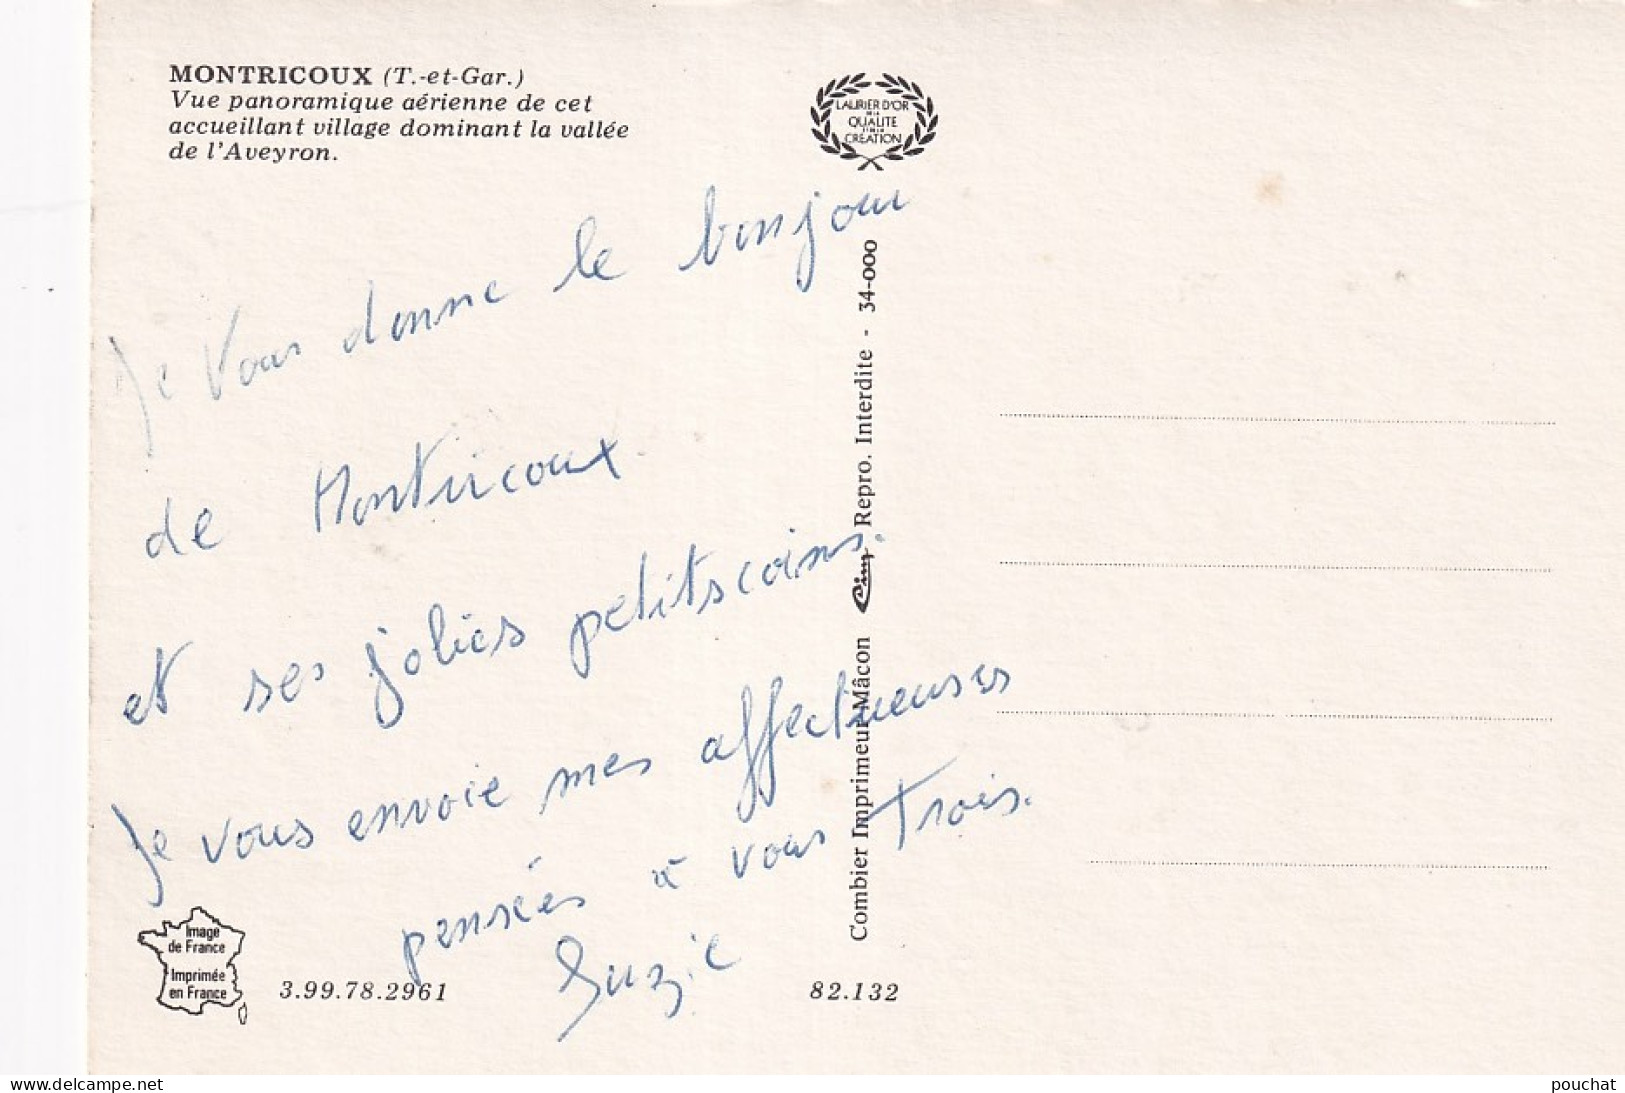 MONTRICOUX (T.-et-Gar.)
Vue panoramique aérienne de cet
accueillant village dominant la vallée
de l'Aveyron.
LAURIER D'OR
DE LA
QUALITE
ET DE LA
CREATION
Je vous donne le bonjour
de Montricoux
et ses jolies petits coins.
Je vous envoie mes affectueuses
pensées à vous trois.
Suzie
Combier Imprimeur Mâcon Cim Repro. Interdite - 34-000
Image
de France
Imprimée
en France
3.99.78.2961
82.132
www.delcampe.net
pouchat